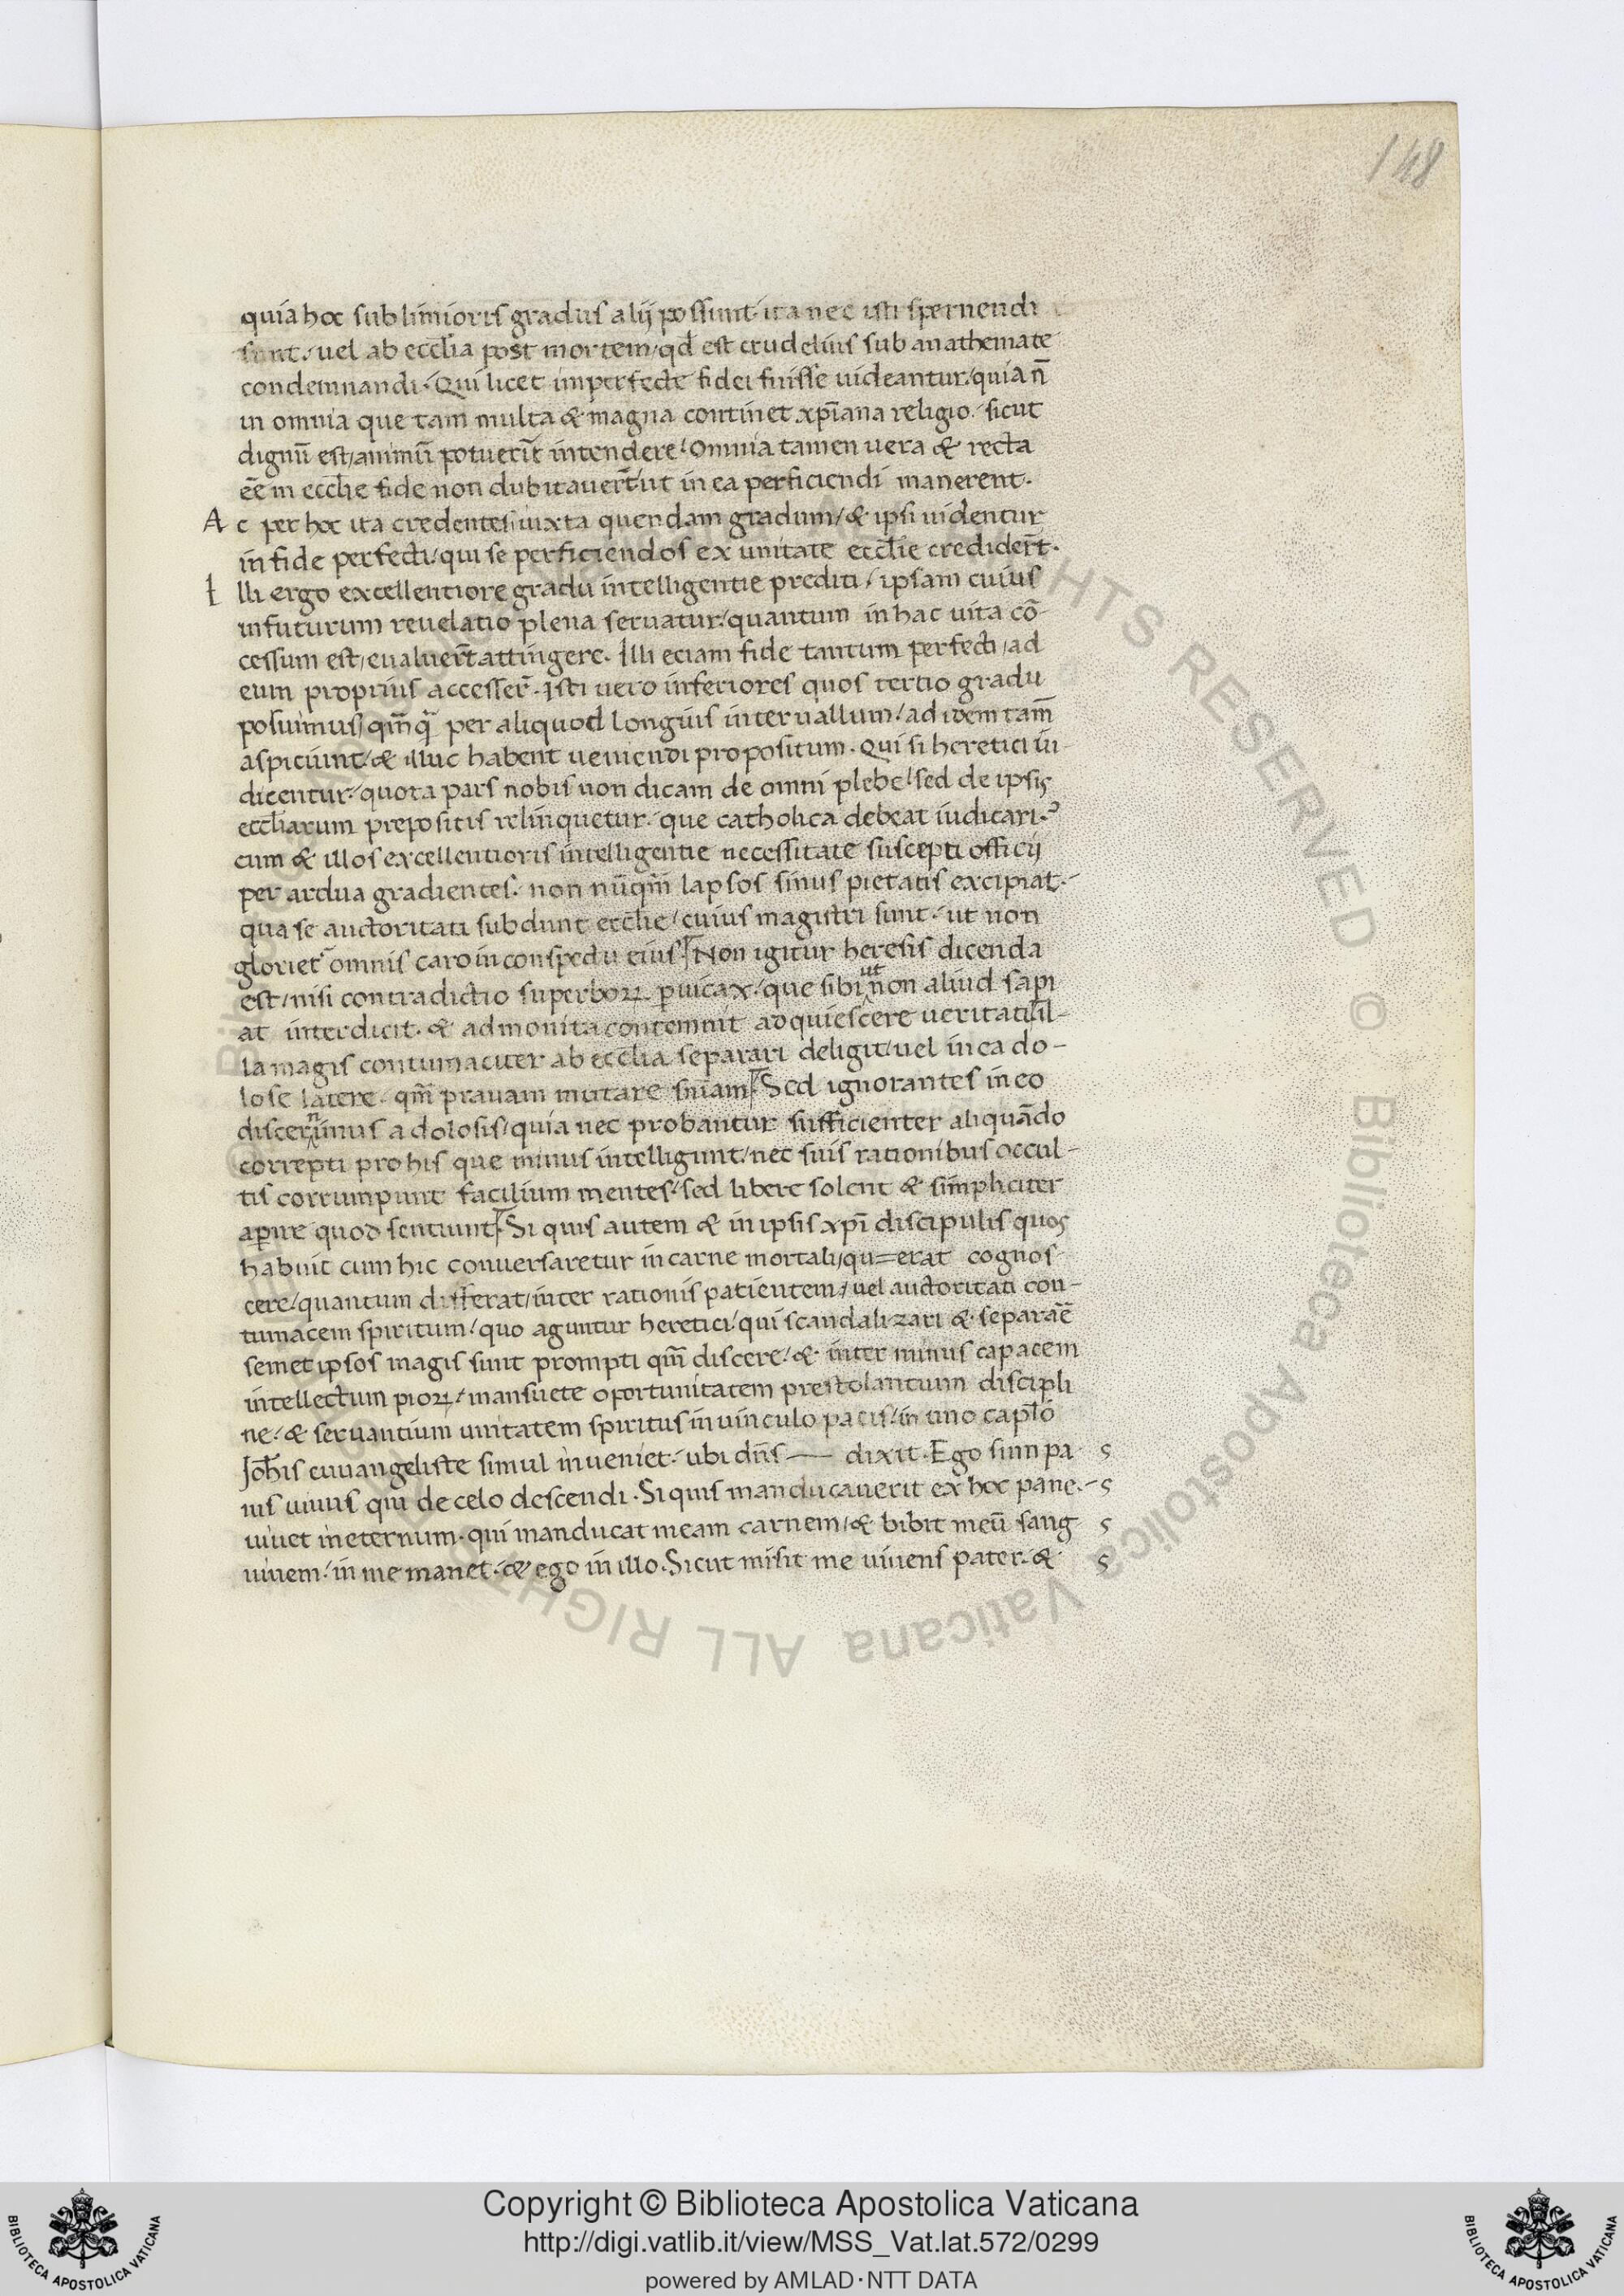 148
quia hoc sublimioris gradus alij possunt. ita nec isti spernendi
sunt. vel ab eccl̄ia post mortem / qđ est crudelius sub anathemate
condemnandi. Qui licet imperfecte fidei fuisse uideantur / quia n̄
in omnia que tam multa & magna continet xp̄iana religio. sicut
dignū est / animū potuerīt intendere. Omnia tamen vera & recta
ēe in eccl̄ie fide non dubitauerīt / ut in ea perficiendi manerent.
Ac per hoc ita credentes iuxta quendam gradum / & ipsi uidentur
in fide perfecti / qui se perficiendos ex unitate eccl̄ie credider̄t.
Illi ergo excellentiore gradu intelligentie prediti / ipsam cuius
in futurum reuelatio plena seruatur / quantum in hac uita cō-
cessum est / eualuer̄t attingere. Illi eciam fide tantum perfecti / ad
eum proprius accesser̄. Isti uero inferiores quos tertio gradu
posuimus / qm̄q per aliquod longius interuallum / ad idem tam̄
aspiciunt / & illuc habent ueniendi propositum. Qui si heretici iu-
dicentur / quota pars nobis non dicam de omni plebe / sed de ipsis
eccl̄iarum prepositis relinquetur. que catholica debeat iudicari?
cum & illos excellentioris intelligentie necessitate suscepti officij
per ardua gradientes. non nūqm̄ lapsos sinus pietatis excipiat.
qua se auctoritati subdunt eccl̄ie / cuius magistri sunt. ut non
glorietr̄ omnis caro in conspectu eius. Non igitur heresis dicenda
est / nisi contradictio superboꝝ ꝑuicax / que sibi ut non aliud sapi
at interdicit. & admonita contemnit adquiescere ueritati / il-
la magis contumaciter ab eccl̄ia separari deligit / uel in ea do-
lose latere. qm̄ prauam mutare sn̄iam. Sed ignorantes in eo
discernimus a dolosis / quia nec probantur sufficienter aliquādo
correpti pro his que minus intelligunt / nec suis rationibus occul-
tis corrumpunt facilium mentes / sed libere solent & simpliciter
aperire quod sentiunt. Si quis autem & in ipsis xp̄i discipulis quos
habuit cum hic conuersaretur in carne mortali / qu=erat cognos
cere / quantum differat / inter rationis patientem / uel auctoritati con-
tumacem spiritum / quo aguntur heretici / qui scandalizari & separar̄e
semet ipsos magis sunt prompti qm̄ discere / & inter minus capacem
intellectum pioꝝ / mansuete oportunitatem prestolantium discipli
ne. & seruantium unitatem spiritus in uinculo pacis / in uno capl̄o
Joh̄is euuangeliste simul inueniet. ubi dn̄s — dixit. Ego sum pa s
nis uiuus qui de celo descendi. Si quis manducauerit ex hoc pane.- s
uiuet in eternum. qui manducat meam carnem / & bibit meū sang s
uinem / in me manet. & ego in illo. Sicut misit me uiuens pater. & s
Copyright © Biblioteca Apostolica Vaticana
http://digi.vatlib.it/view/MSS_Vat.lat.572/0299
powered by AMLAD·NTT DATA